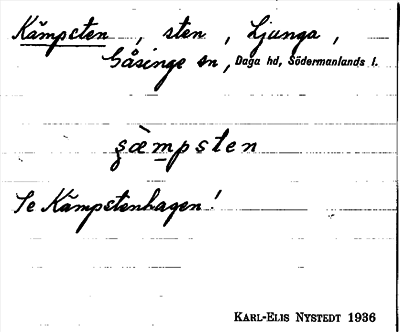 Kämpsten, sten, Ljunga,
Gåsinge sn, Daga hd, Södermanlands l.
şæ̀mpsten
Se Kämpstenhagen!
KARL-ELIS NYSTEDT 1936